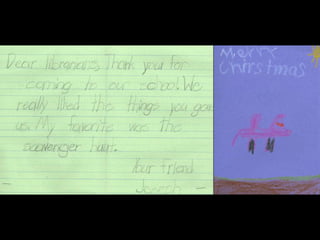 Dear librarians, Thank you for
coming to our school! We
really liked the things you gave
us. My favorite was the
scavenger hunt.
Your Friend
Joseph
Merry
Christmas